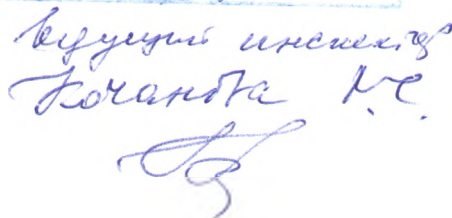 ведущий инспектор
Кочанова Н.С.